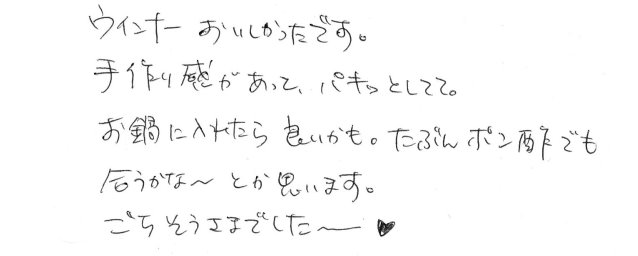 ウィンナー おいしかったです。
手作り感があって、パキッとしてて。
お鍋に入れたら良いかも。たぶんポン酢でも
合うかな〜とか思います。
ごちそうさまでした〜♥